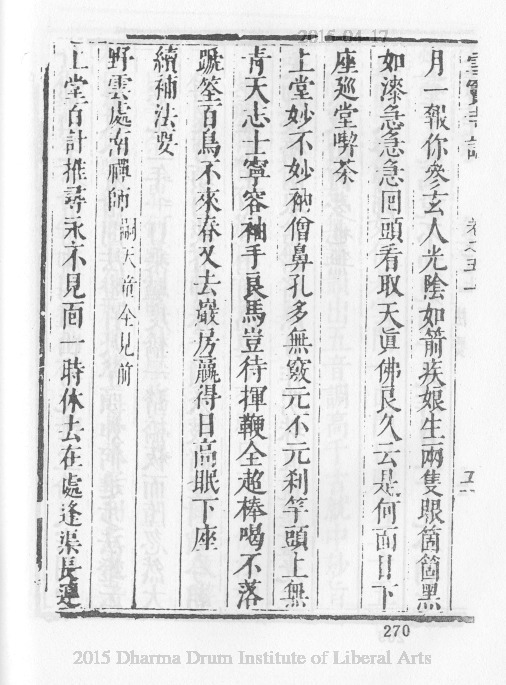 2015-04-17
雪竇寺誌 卷之五 五
月一報你參玄人光陰如箭疾娘生兩隻眼箇箇黑
如漆急急急回頭看取天眞佛良久云是何面目下
座巡堂喫茶
上堂妙不妙衲僧鼻孔多無竅元不元剎竿頭上無
靑天志士寧容袖手良馬豈待揮鞭全超棒喝不落
蹏筌百鳥不來春又去巖房贏得日高眠下座
續補法要
野雲處南禪師嗣天童全見前
上堂百計推尋永不見面一時休去在處逢渠長連
270
2015 Dharma Drum Institute of Liberal Arts